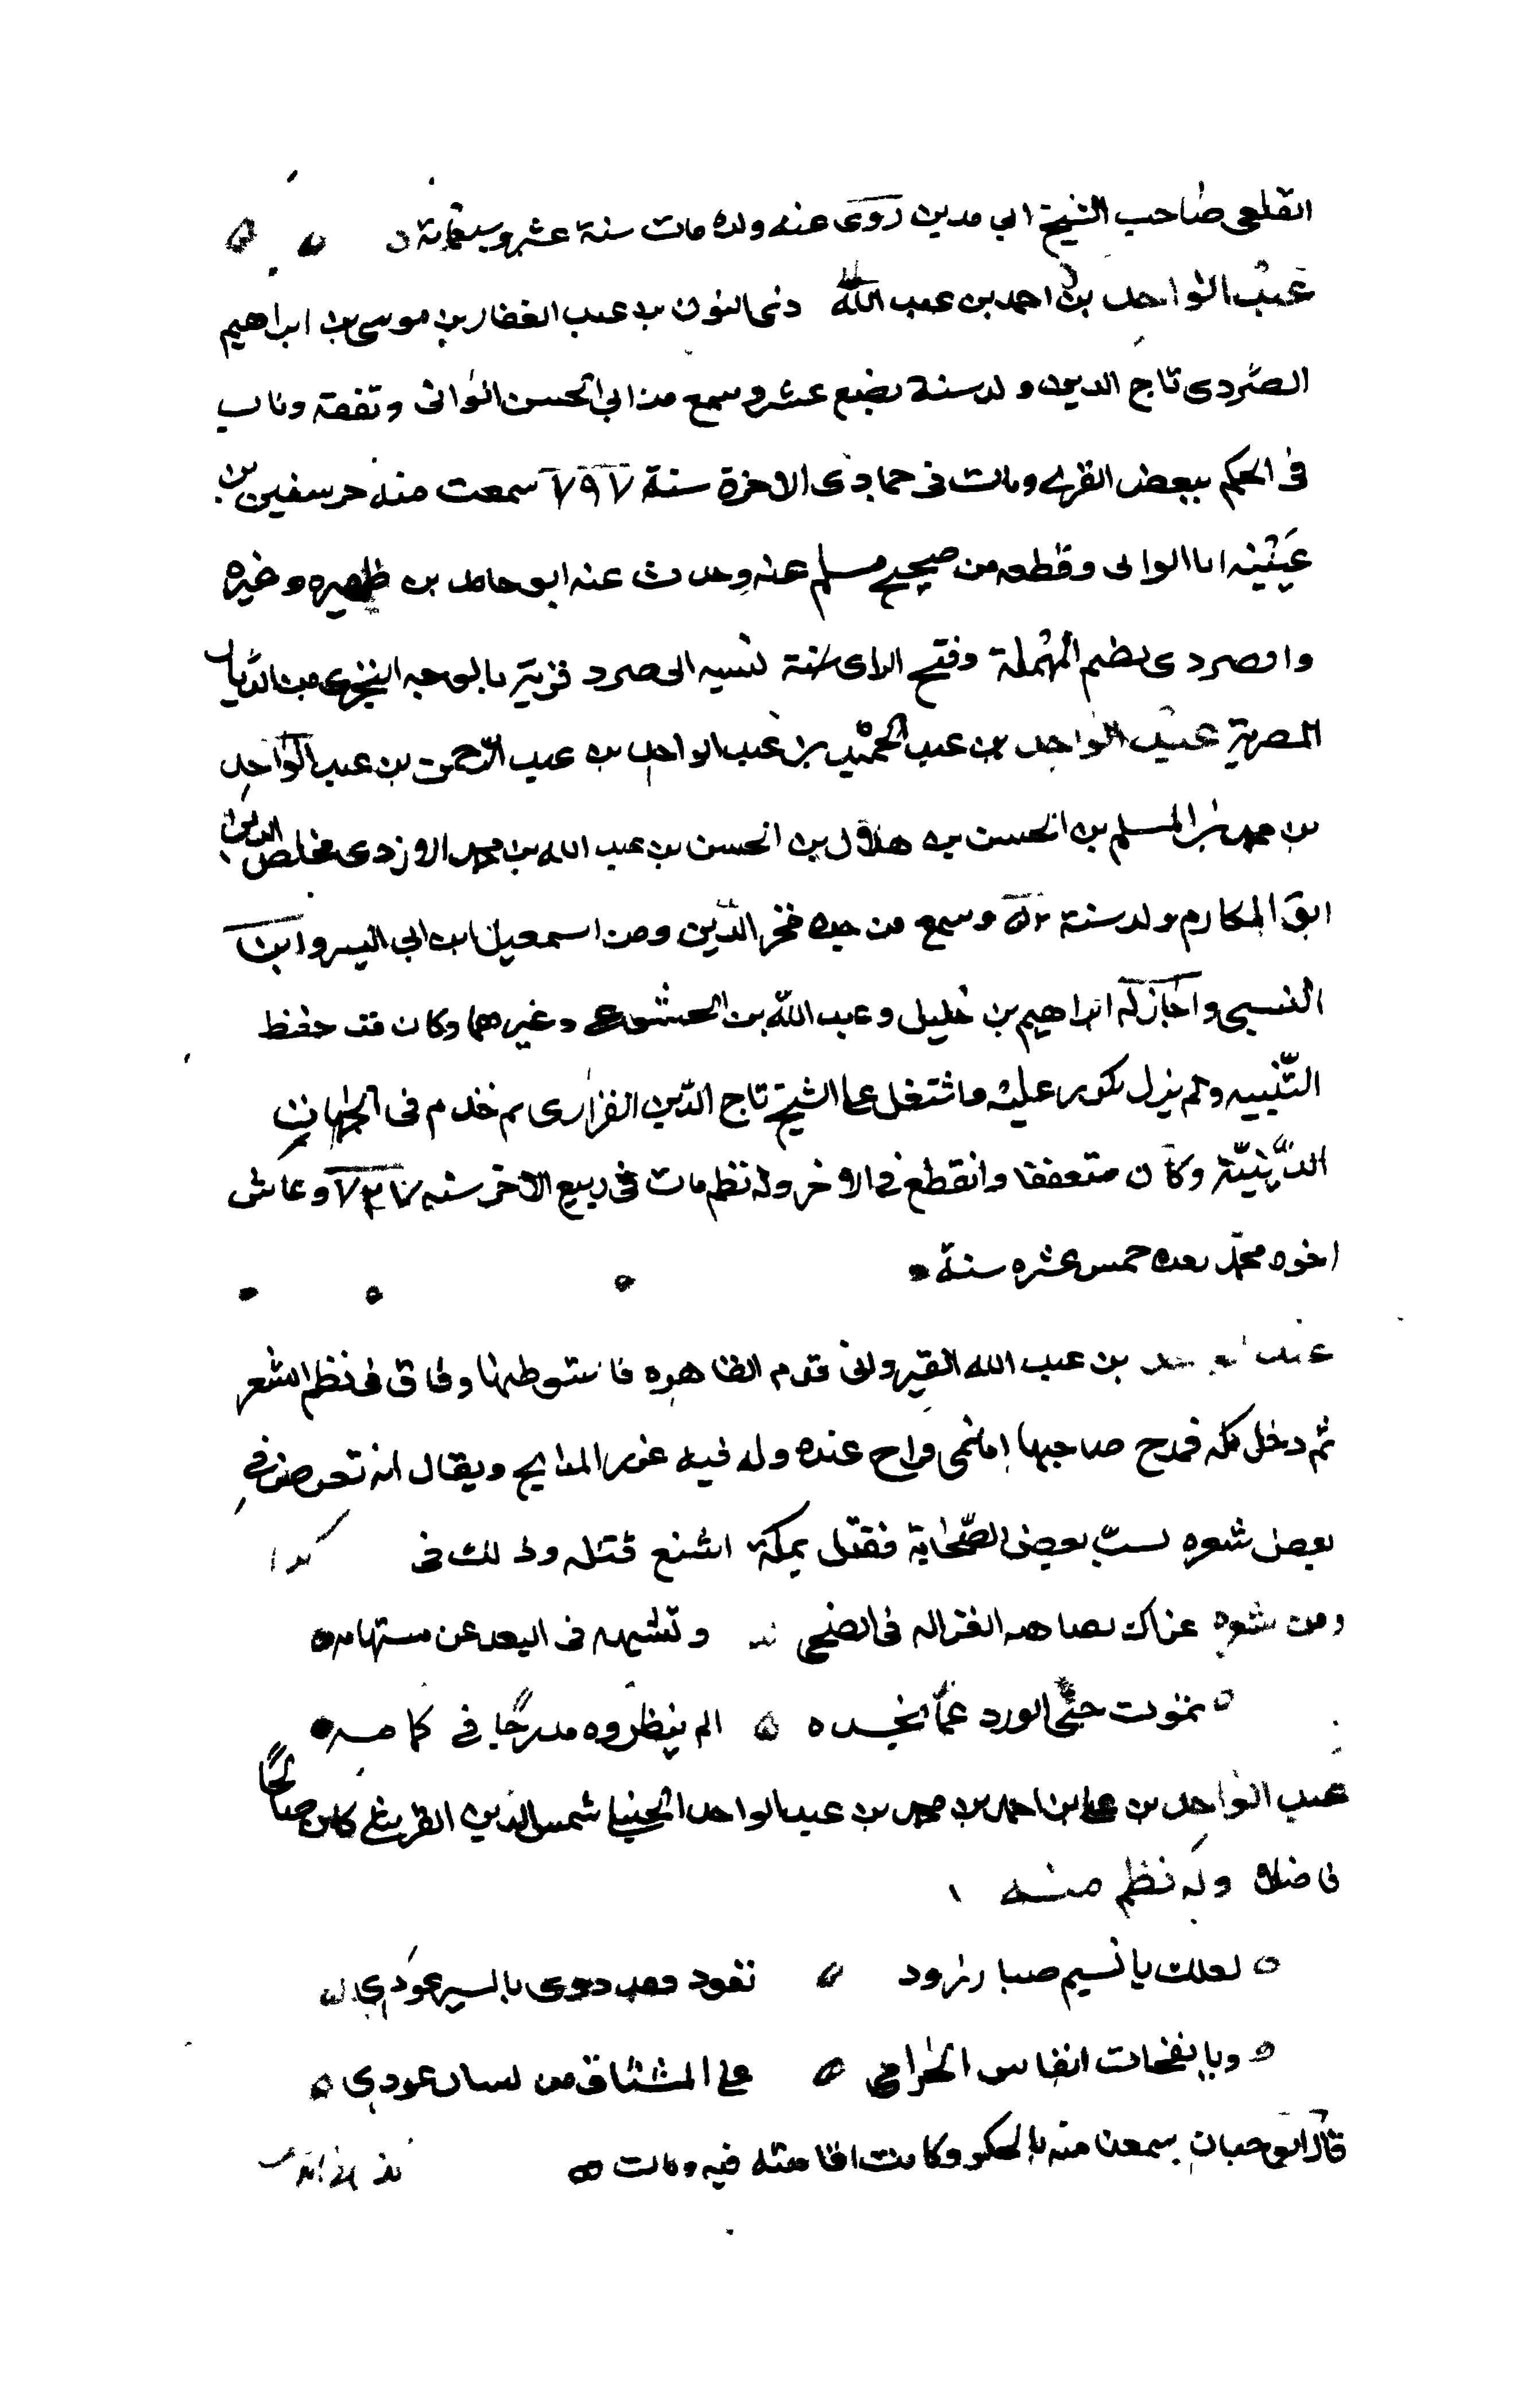 القلعى صاحب الشيخ ابي مدين روى عنه ولده مات سنة عشر وسبعمائة
عبد الواحد بن احمد بن عبد الله ذى النون بن عبد الغفار بن موسى بن ابراهيم
الصردى تاج الدين ولد سنة بضع عشر وسمع من ابي الحسن الوانى وتفقه وناب
فى الحكم ببعض القرى ومات فى جمادى الاخرة سنة ٧٩٧ سمعت منه جز سفين بن
عيينه انا الوانى وقطعه من صحيح مسلم عنه وحدث عنه ابو حامد بن ظهيره وغيره
والصردى بضم المهملة وفتح الراى نسبه الى صرد قرية بالوجه البحرى من الديار
المصرية عبد الواحد بن عبد الحميد بن عبد الواحد بن عبد الرحمن بن عبد الواحد
بن محمد بن المسلم بن الحسن بن هلال بن الحسن بن عبد الله بن محمد الازدى مخلص الدين
ابو المكارم ولد سنة وسمع من جده فخر الدين ومن اسمعيل ابن ابي اليسر وابن
النسبى واجاز له ابراهيم بن خليل وعبد الله بن الخشوعى وغيرهما وكان قد حفظ
التنبيه ولم يزل يكرر عليه واشتغل على الشيخ تاج الدين الفزارى ثم خدم فى الجهات
الدينية وكان متعففا وانقطع فى الاخر وله نظم مات فى ربيع الاخر سنه ٧٣٧ وعاش
اخوه محمد بعده خمس عشره سنة
بن عبد الله القيروانى قدم القاهره فاستوطنها وفاق فى نظم الشعر
ثم دخل مكه فمدح صاحبها ابا نمى وراج عنده وله فيه غرر المدايح ويقال انه تعرض فى
بعض شعره لسب بعض الصحابة فقتل بمكة اشنع قتله وذلك فى كذا
ومن شعره الغزاله فى الضحى وتشبهه فى البعد عن مستهامه
حتى الورد بخده الم ينظروه مدرجا فى كمامه
عبد الواحد بن على بن احمد بن محمد بن عبد الواحد الحنبلى شمس الدين القرشى كان صالحا
فاضلا وله نظم منه
لعلك يا نسيم صبا زرود تعود فقد ذوى بالسير عودى
ويا نفحات انفاس الخزامى على المشتاق من لسان عودى
قال ابو حيان سمعنا منه بالحكر وكانت اقامته فيه ومات